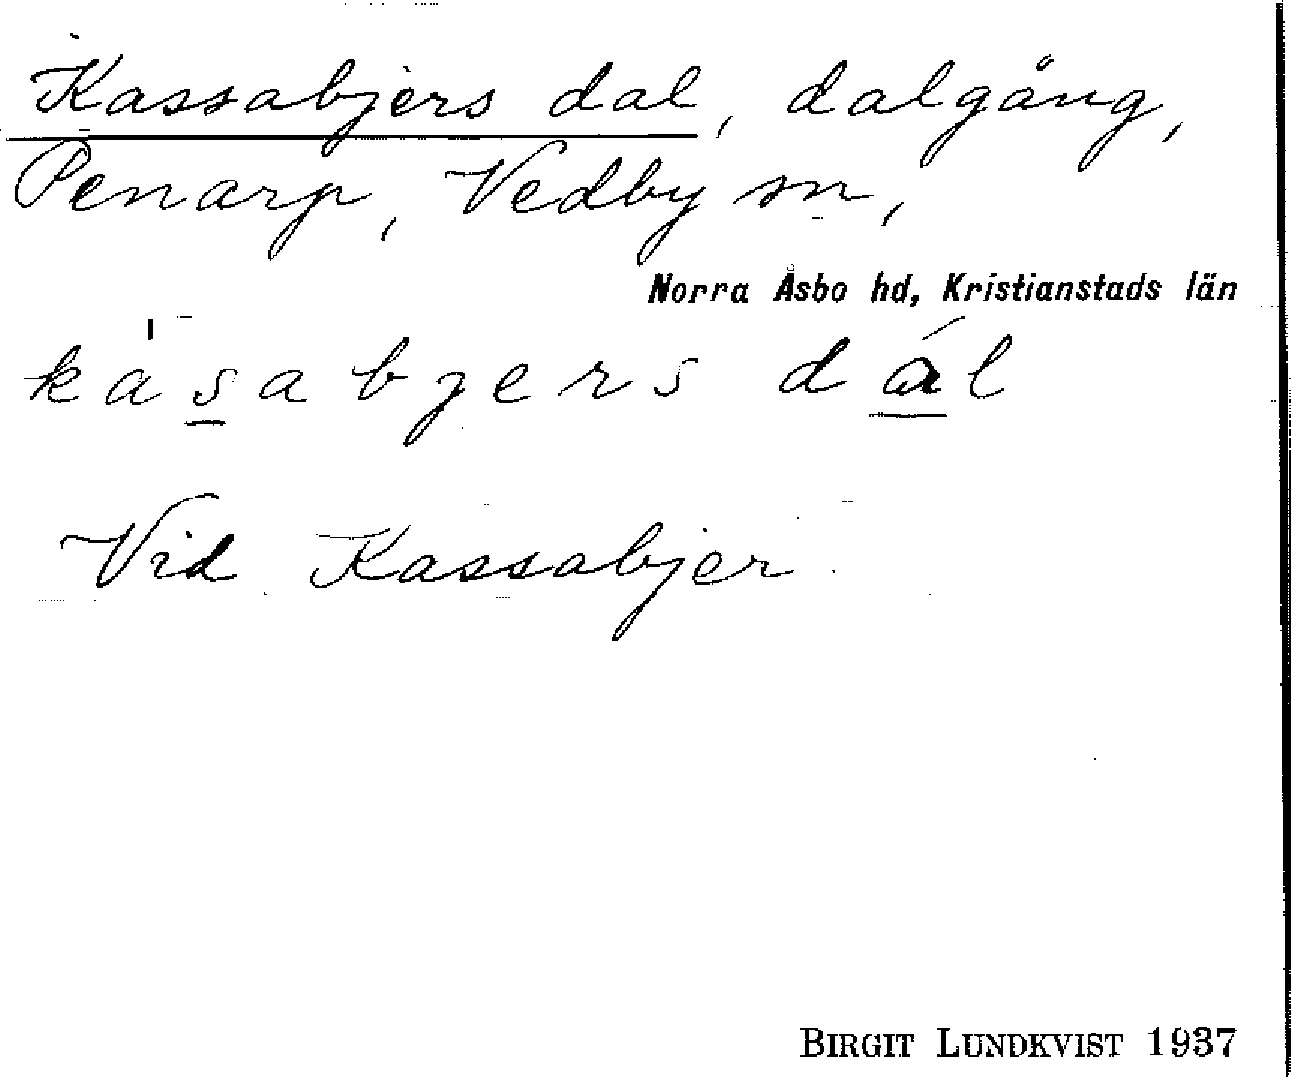 Kassabjers dal, dalgång,
Penarp, Vedby sn,
Norra Åsbo hd, Kristianstads län
kàs̲abjers dá̲l
Vid Kassabjer
BIRGIT LUNDKVIST 1937